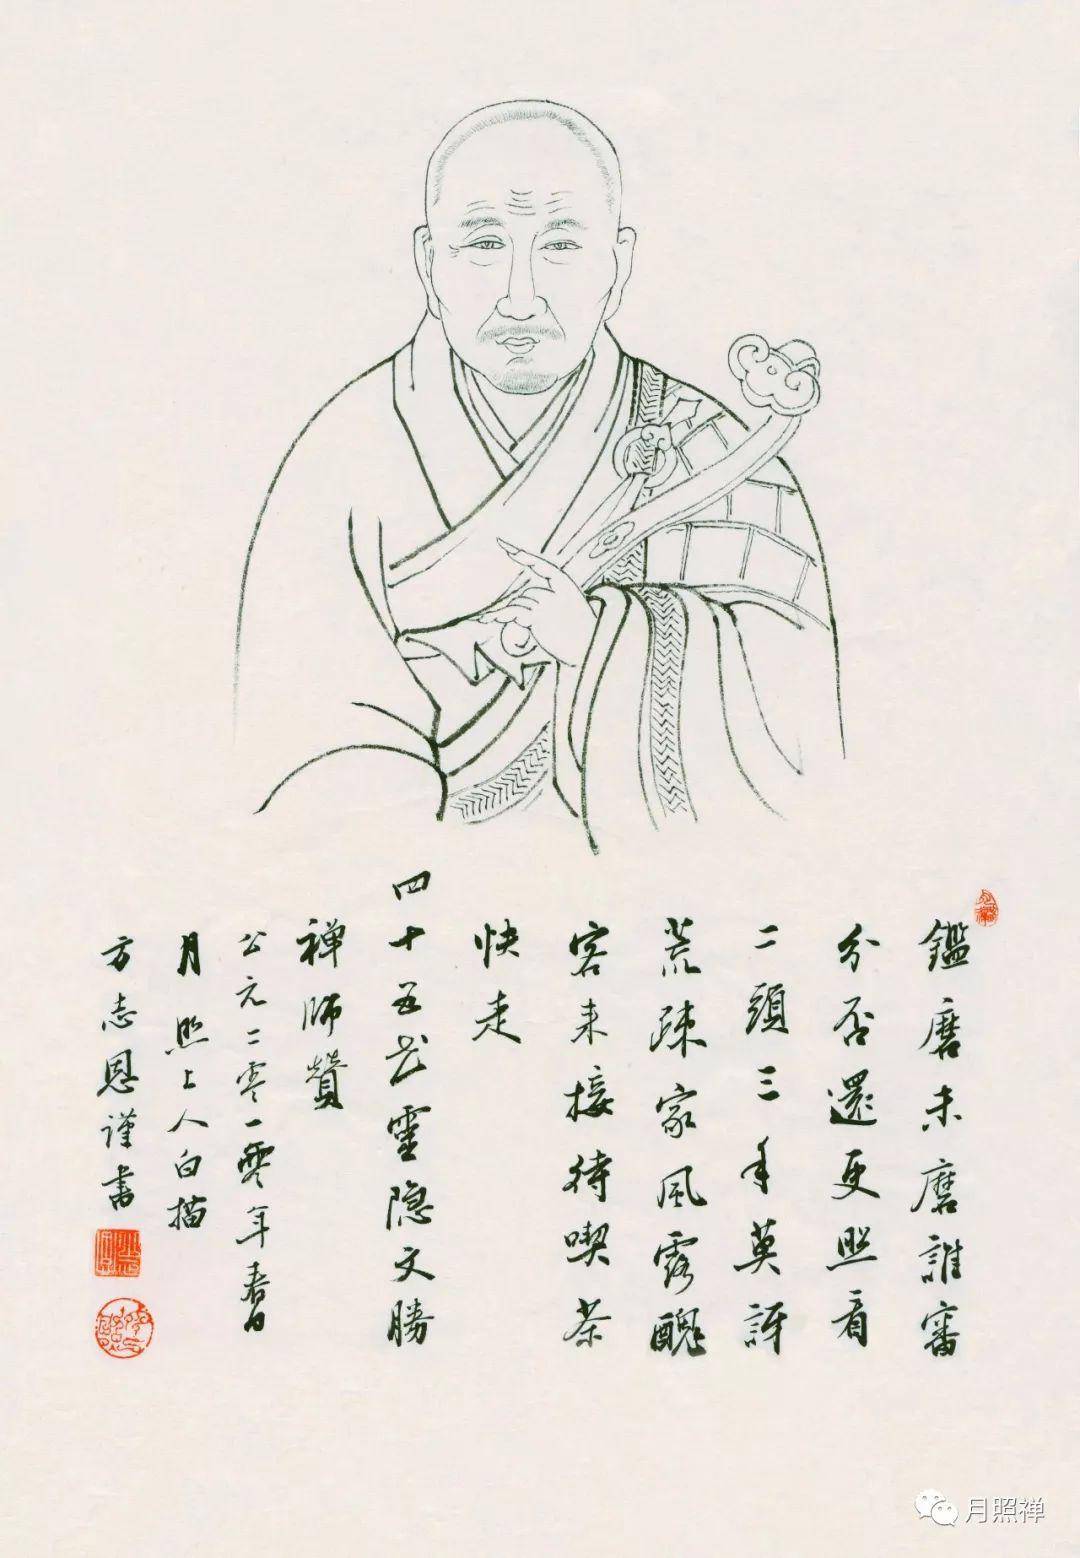 鑑磨未磨誰審
分否還更照看
二頭三手莫訝
荒疎家風露醜
客来接待喫茶
快走
四十五世靈隐文勝
禅師贊
公元二零一零年春日
月照上人白描
方志恩谨書
月照禅